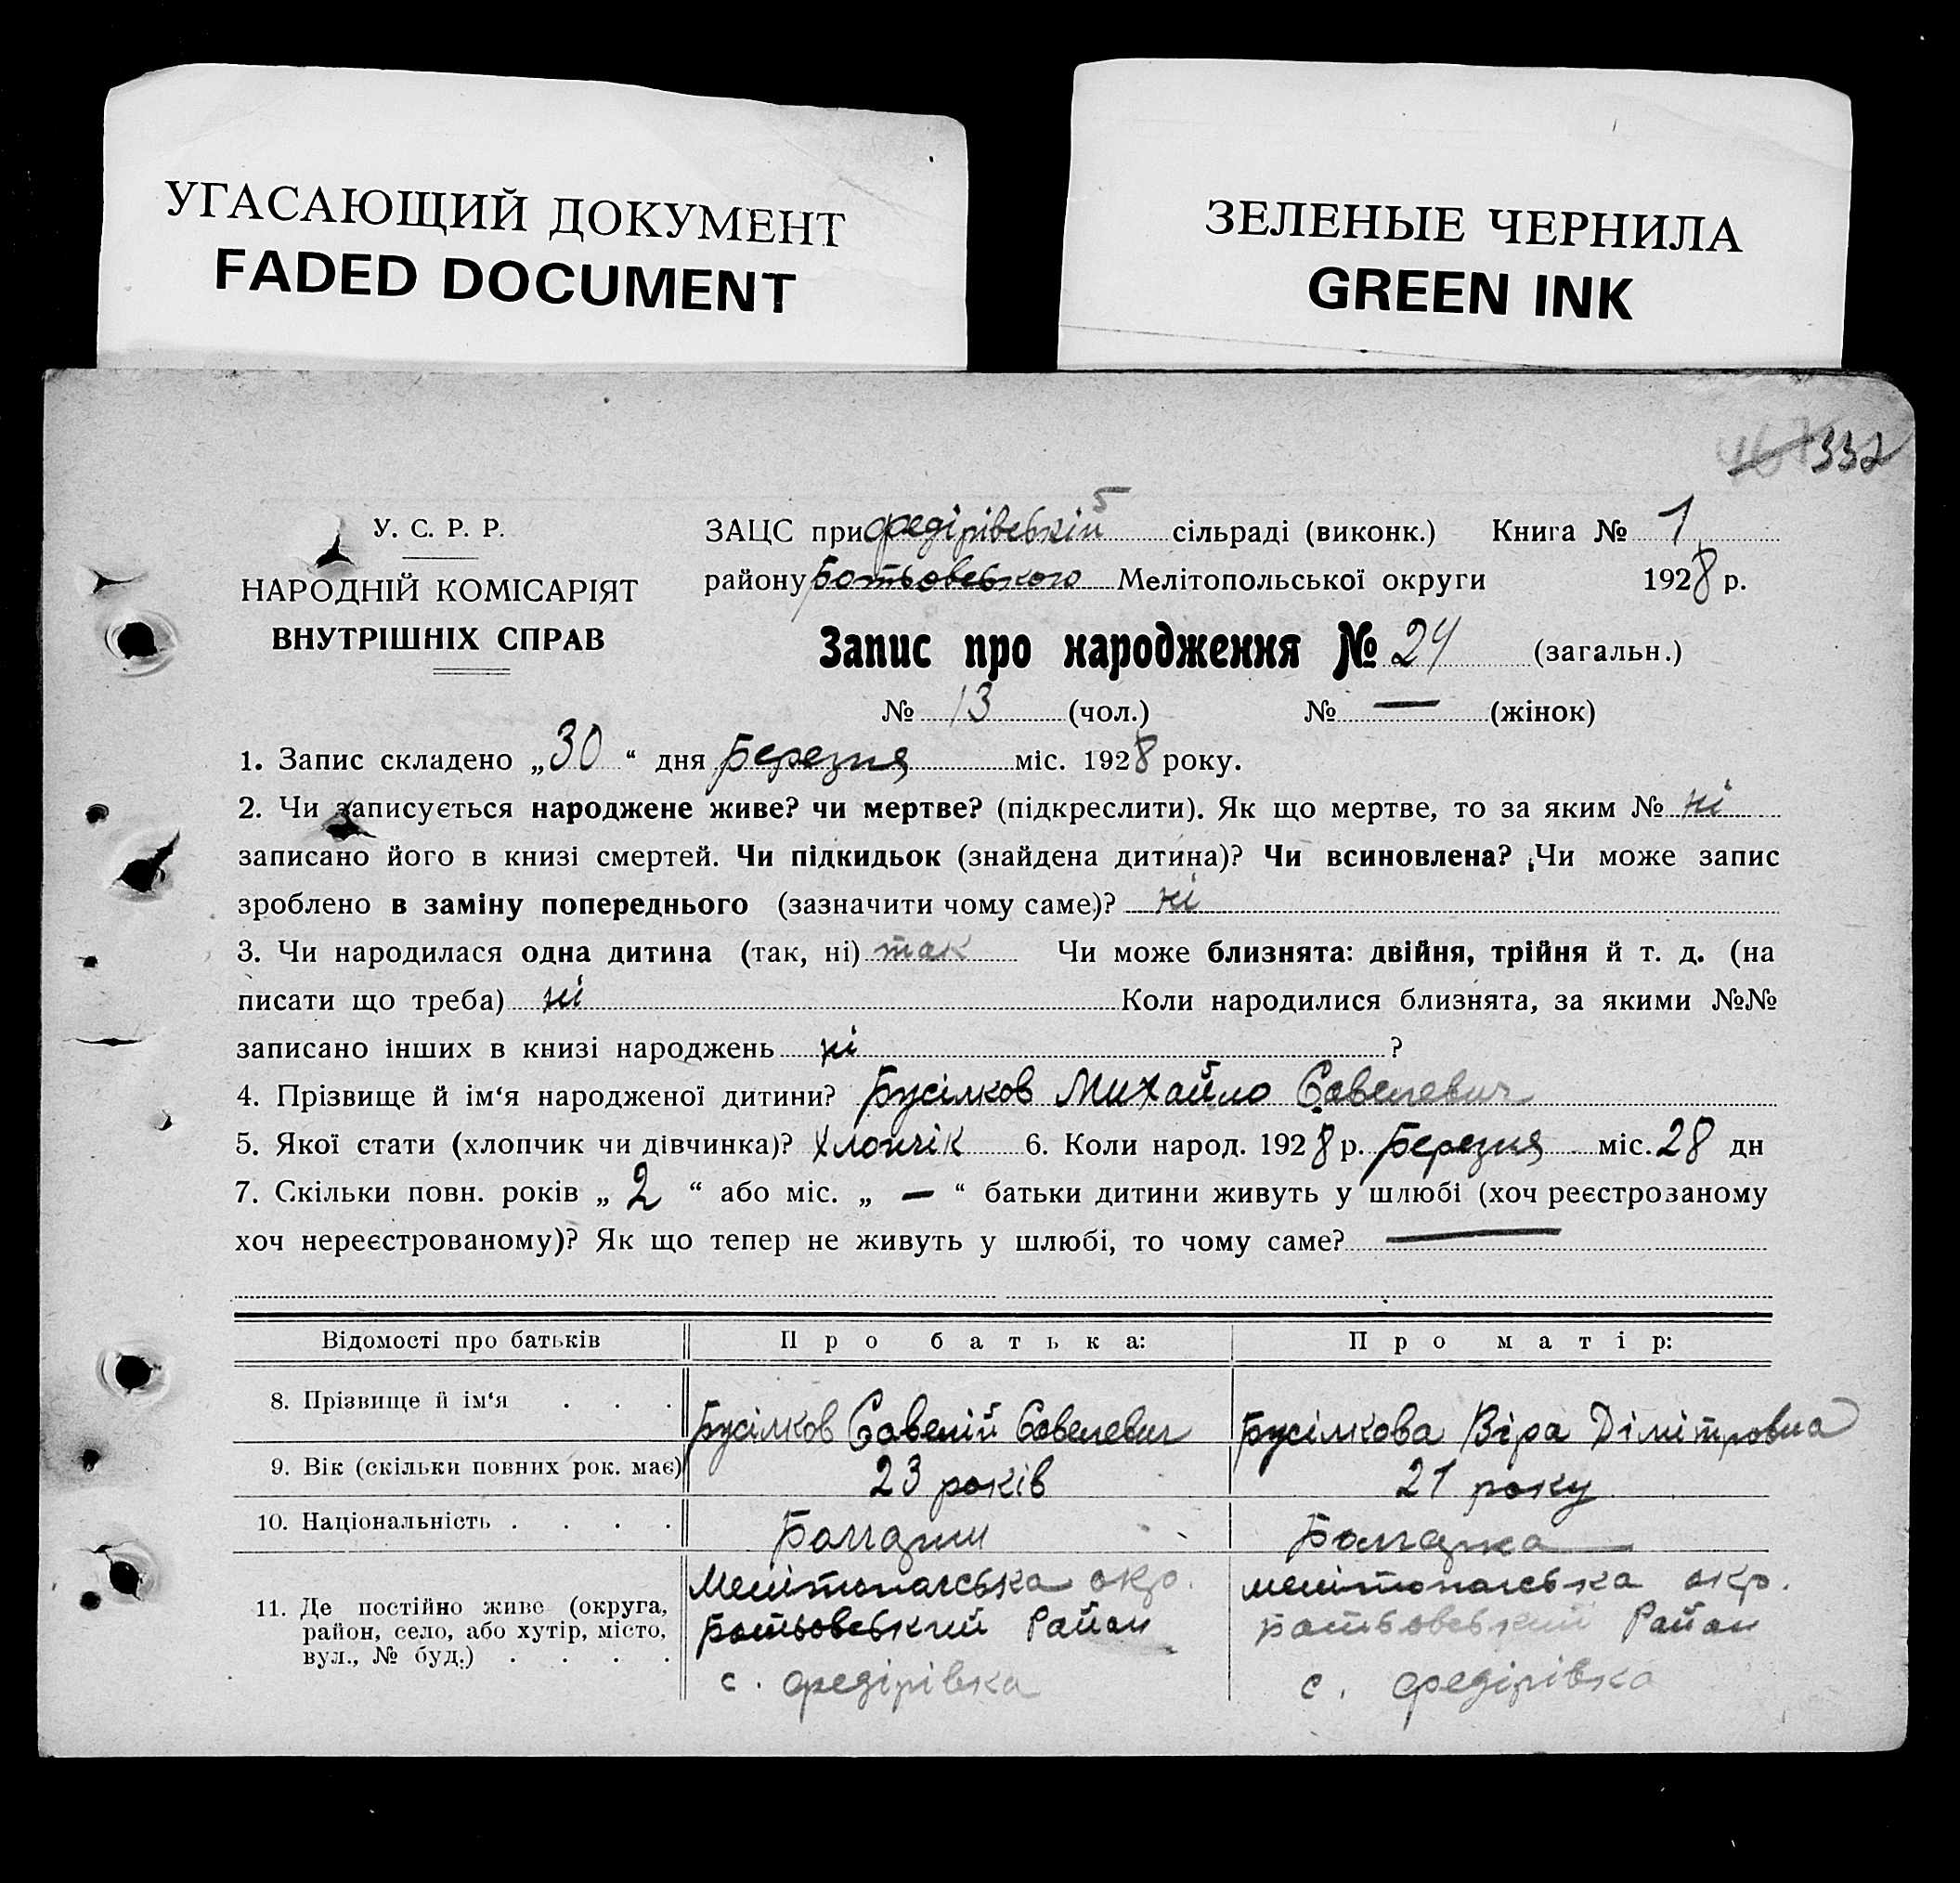 УГАСАЮЩИЙ ДОКУМЕНТ
FADED DOCUMENT
ЗЕЛЕНЫЕ ЧЕРНИЛА
GREEN INK
332
У. С. Р. Р.
НАРОДНІЙ КОМІСАРІЯТ
ВНУТРІШНІХ СПРАВ
ЗАЦС при Федірівській сільраді (виконк.) Книга № 1
району Ботьовського Мелітопольської округи 1928 р.
Запис про народження № 24 (загальн.)
№ 13 (чол.) № — (жінок)
1. Запис складено „30“ дня Березня міс. 1928 року.
2. Чи записується народжене живе? чи мертве? (підкреслити). Як що мертве, то за яким № ні
записано його в книзі смертей. Чи підкидьок (знайдена дитина)? Чи всиновлена? Чи може запис
зроблено в заміну попереднього (зазначити чому саме)? ні
3. Чи народилася одна дитина (так, ні) так Чи може близнята: двійня, трійня й т. д. (на
писати що треба) ні Коли народилися близнята, за якими №№
записано інших в книзі народжень ні ?
4. Прізвище й ім‘я народженої дитини? Бусілков Михайло Савелевич
5. Якої стати (хлопчик чи дівчинка)? хлопчік 6. Коли народ. 1928 р. Березня міс. 28 дн
7. Скільки повн. років „ 2 “ або міс. „ — “ батьки дитини живуть у шлюбі (хоч реєстрозаному
хоч нереєстрованому)? Як що тепер не живуть у шлюбі, то чому саме? —
Відомості про батьків Про батька: Про матір:
8. Прізвище й ім‘я . . . Бусілков Савелій Савелевич Бусілкова Віра Дімітровна
9. Вік (скільки повних рок. має) 23 років 21 року
10. Національність . . . . Болгарин Болгарка
11. Де постійно живе (округа, район, село, або хутір, місто, вул., № буд.) . . . .
Мелітопольська окр. Мелітопольська окр.
Ботьовський Район Ботьовський Район
с. Федірівка с. Федірівка